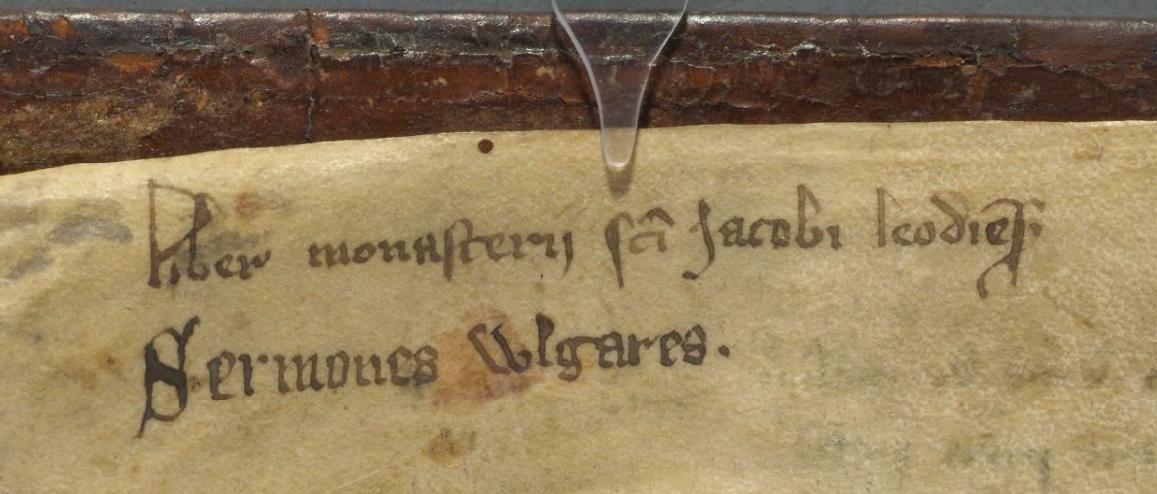 Liber monasterij sci̅ Jacobi leodieñ
Sermones wlgares.